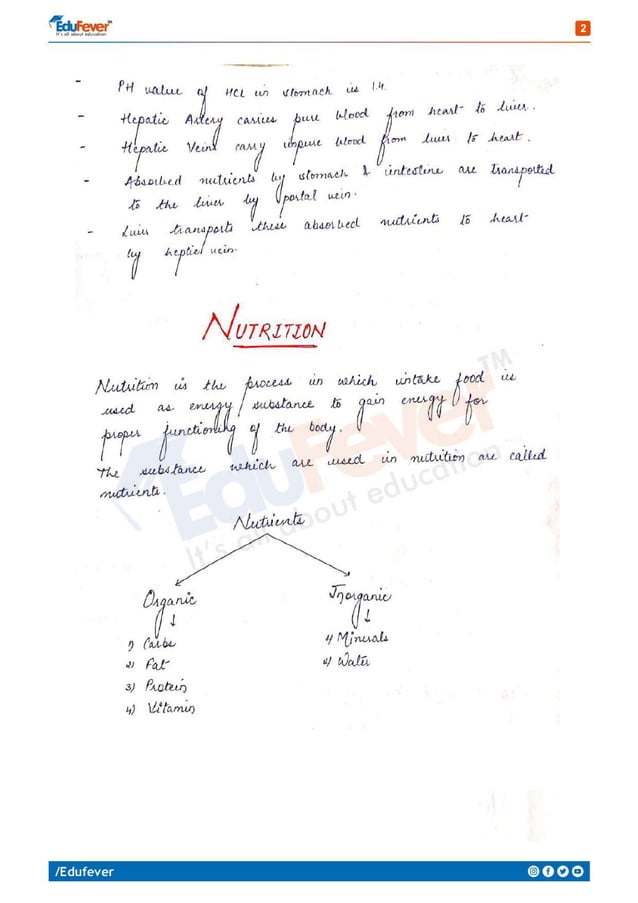 EduFever™
It's all about education
2
- PH value of HCL in stomach is 1.4.
- Hepatic Artery carries pure blood from heart to liver.
- Hepatic Veins carry impure blood from liver to heart.
- Absorbed nutrients by stomach & intestine are transported
to the liver by portal vein.
- Liver transports these absorbed nutrients to heart
by heptic vein.
NUTRITION
Nutrition is the process in which intake food is
used as energy/substance to gain energy for
proper functioning of the body.
The substance which are used in nutrition are called
nutrients.
EduFever™
It's all about education
Nutrients
Organic Inorganic
↓ ↓
1) Carbs 1) Minerals
2) Fat 2) Water
3) Protein
4) Vitamin
/Edufever